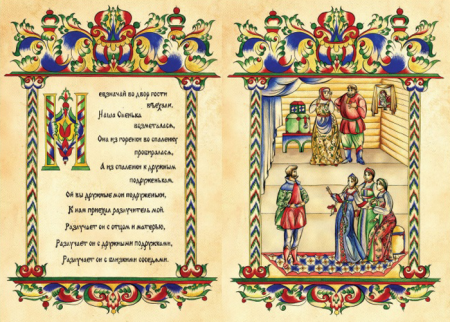 Невзначай во двор гости
въехали,
Наша Оленька
возметилася,
Она из горенки во спаленку
пробиралася,
А из спаленки к дружным
подруженькам.
Ой вы дружные мои подруженьки,
К нам приехал разлучитель мой
Разлучает он с отцом и матерью,
Разлучает он с дружными подружками,
Разлучает он с близкими соседями.